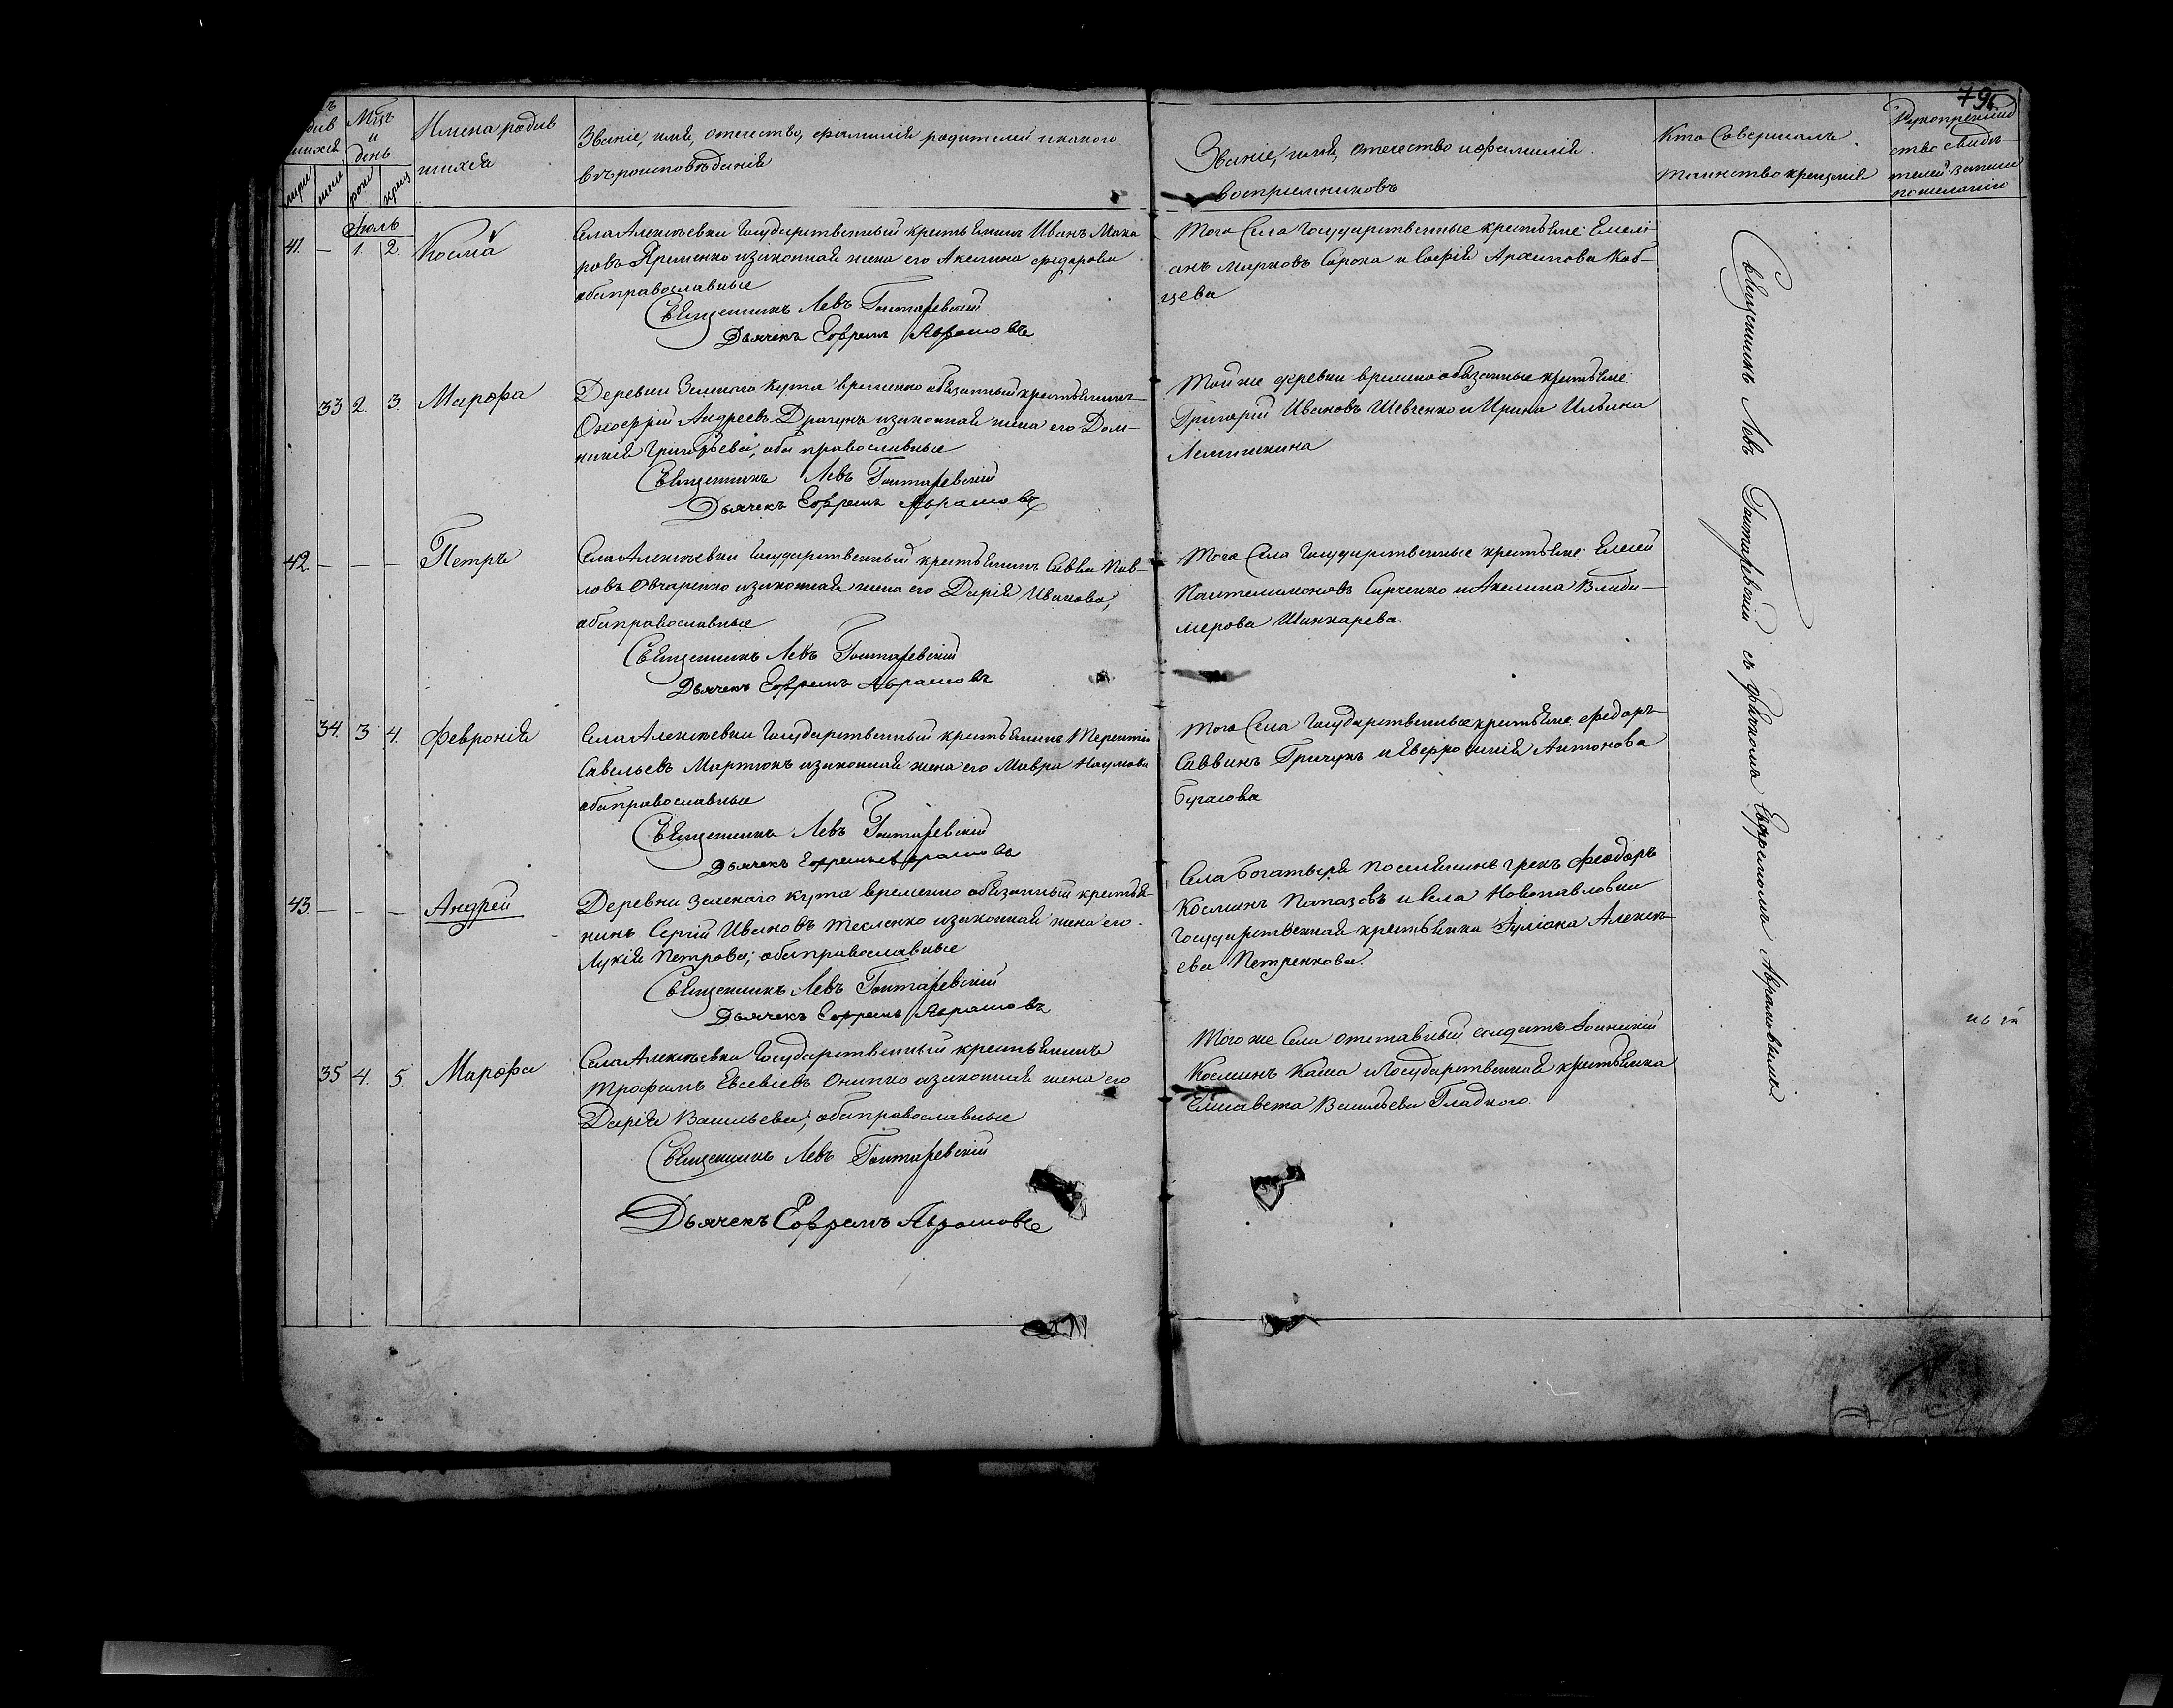 79
Мцъ
и
день
Имена родив
шихся
Званіе, имя, отечество, фамилія родителей и какого
въроисповѣданія
Званіе, имя, отечество и фамилія
воспріемниковъ
Кто совершалъ
таинство крещенія
Рукоприклад
ство свидѣ
телей записи
по желанію
Іюль
41. — 1. 2. Косма
Села Алексѣевки Государственный крестьянинъ Иванъ Мака
ровъ Яременко изаконная жена его Акелина Федорова
оба православные
Священникъ Левъ Гонтаревскій
Дьячекъ Ефремъ Аврамовъ
Того Села Государственные крестьяне: Емелі
анъ Марковъ Сорока и Софія Архипова Коб-
цева
33 2. 3. Марфа
Деревни Зеленаго Кута временно обязанный крестьянинъ
Онофрій Андреевъ Драгунъ изаконная жена его Дом-
никія Григорьева, оба православные
Священникъ Левъ Гонтаревскій
Дьячекъ Ефремъ Аврамовъ
Той же деревни временно обязанные крестьяне:
Григорій Ивановъ Шевченко и Ирина Ильина
42. — — — Петръ
Села Алексѣевки Государственный крестьянинъ Савва Пав-
ловъ Овчаренко изаконная жена его Дарія Иванова,
оба православные
Священникъ Левъ Гонтаревскій
Дьячекъ Ефремъ Аврамовъ
Того Села Государственные крестьяне: Елсей
Пантелимоновъ Сирченко и Акелина Влади-
мерова Шинкарева.
34. 3 4. Февронія
Села Алексѣевки Государственный крестьянинъ Терентій
Савельевъ Мартюкъ изаконная жена его Мавра Наумова
оба православные
Священникъ Левъ Гонтаревскій
Дьячекъ Ефремъ Аврамовъ
Того Села Государственные крестьяне: Федоръ
Саввинъ Гричунъ и Евфросинія Антонова
43. — — — Андрей
Деревни Зеленаго Кута временно обязанный крестья-
нинъ Сергій Ивановъ Тесленко изаконная жена его
Лукія Петрова; оба православные
Священникъ Левъ Гонтаревскій
Дьячекъ Ефремъ Аврамовъ
Села Богатыря поселянинъ грекъ Феодоръ
Косминъ Папазовъ и села Новопавловки
Государственная крестьянка Іуліана Алексѣ-
ева Петренкова.
35 4. 5. Марфа
Села Алексѣевки Государственный крестьянинъ
Трофимъ Евсевіевъ Онипко изаконная жена его
Дарія Васильева; оба православные
Священникъ Левъ Гонтаревскій
Дьячекъ Ефремъ Аврамовъ
Того же Села отставный солдатъ Іоанникій
Косминъ Каша и Государственная крестьянка
Елисавета Васильева Гладкого.
Священникъ Левъ Гонтаревскій съ дьячкомъ Ефремомъ Аврамовымъ